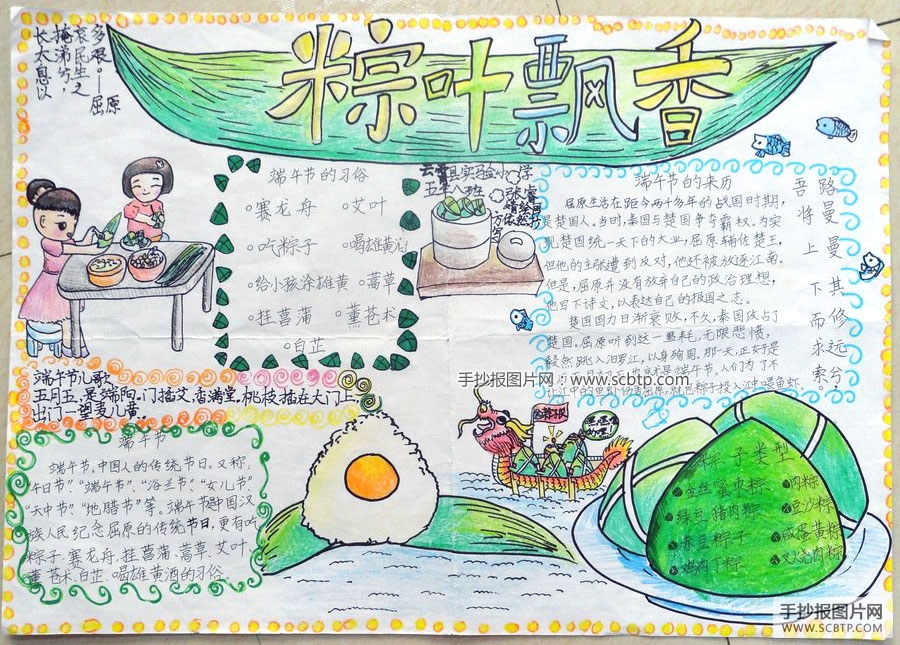 长太息以
掩涕兮，
哀民生之
多艰。——屈原
粽叶飘香
端午节的习俗
赛龙舟 艾叶
吃粽子 喝雄黄酒
给小孩涂雄黄 蒿草
挂菖蒲 薰苍术
白芷
五年八班
端午节的来历
屈原生活在距今两千多年的战国时期，
是楚国人。当时，秦国与楚国争夺霸权。为实
现楚国统一天下的大业，屈原辅佐楚王，
但他的主张遭到反对，他还被放逐江南，
但是，屈原并没有放弃自己的政治理想，
他写下诗文，以表达自己的报国之志。
楚国国力日渐衰败，不久，秦国攻占了
楚国。屈原听到这一噩耗，无限悲愤，
毅然跳入汨罗江，以身殉国。那一天，正好是
路曼曼其修远兮，
吾将上下而求索
端午节儿歌
五月五，是端阳。门插艾，香满堂，桃枝插在大门上，
出门一望麦儿黄。
手抄报图片网 www.scbtp.com
端午节
端午节，中国人的传统节日。又称：
“午日节”“端午节”，“浴兰节”“女儿节”
“天中节”“地腊节”等。端午节是中国汉
族人民纪念屈原的传统节日，更有吃
粽子，赛龙舟，挂菖蒲，蒿草，艾叶，
薰苍术，白芷，喝雄黄酒的习俗。
粽子类型
金丝蜜枣粽 肉粽
绿豆猪肉粽 豆沙粽
赤豆粽子 咸蛋黄粽
鸡肉丁粽 叉烧肉粽
手抄报图片网
WWW.SCBTP.COM